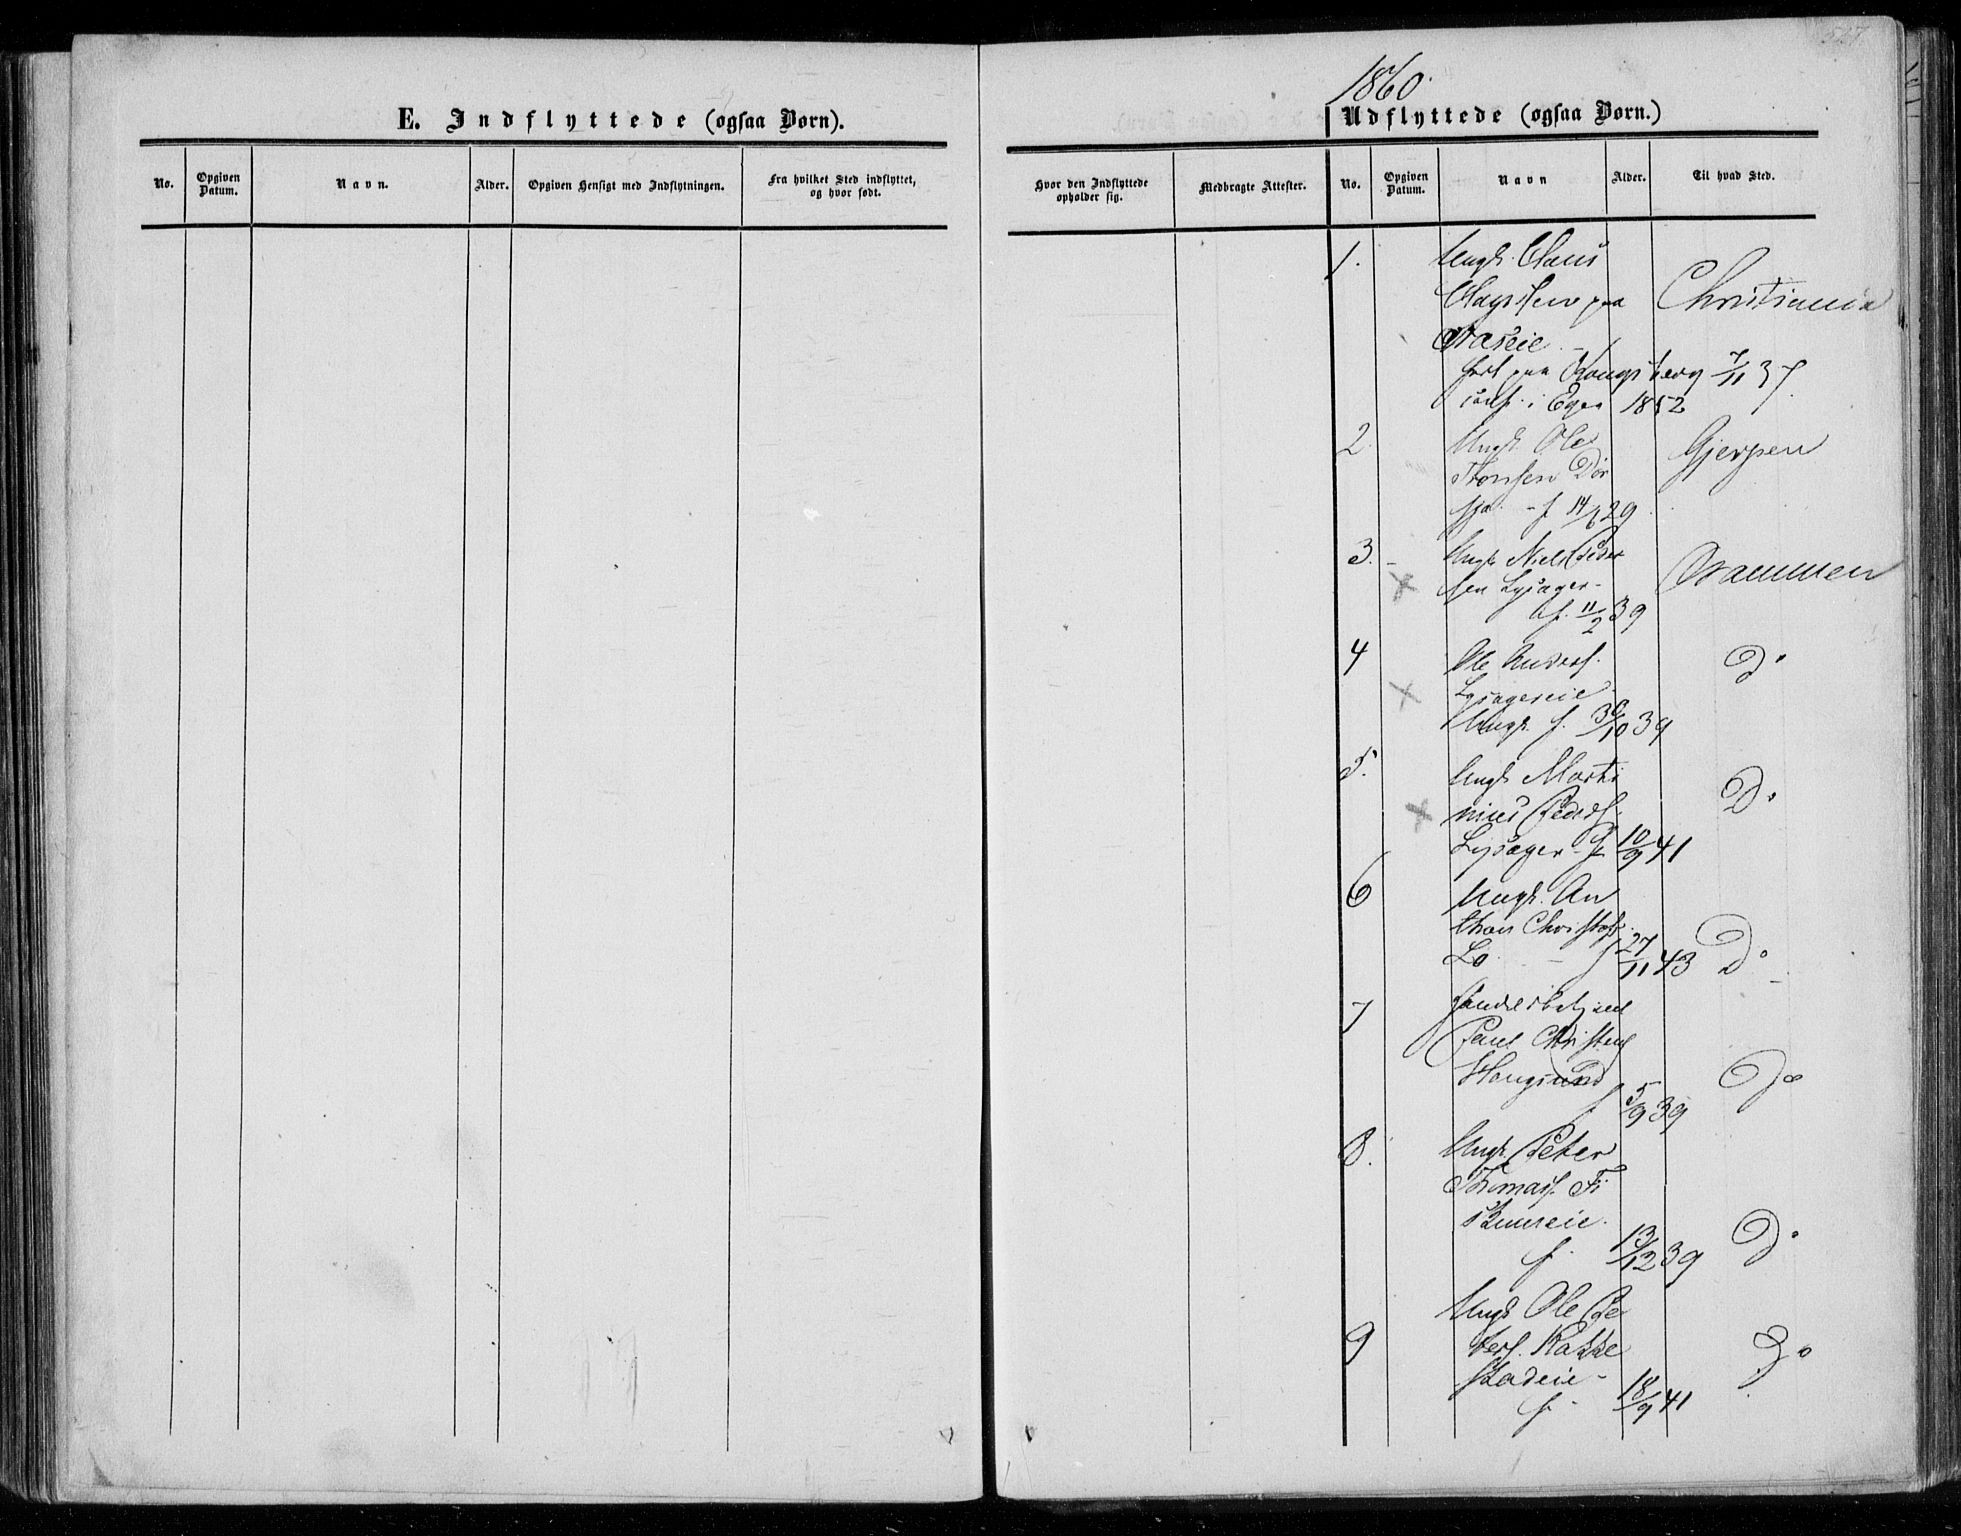 527.
1860.
E. Indflyttede (ogsaa Børn).
Udflyttede (ogsaa Børn.)
No.
Opgiven Datum.
Navn.
Alder.
Opgiven Hensigt med Indflytningen.
Fra hvilket Sted indflyttet, og hvor født.
Hvor den Indflyttede opholder sig.
Medbragte Attester.
No.
Opgiven Datum.
Navn
Alder.
Til hvad Sted.
1. Ungk. Claus
paa Christiania
paa Kongsberg 7/11 37
i Eger 1852
2. Ungk. Ole Gjerpen
Thorsen
f 14/6 29
3. Ungk. Niels Peder
sen Lysager - Drammen
f. 11/2 39
4 Ole Anders. Do
Lysagereie
Ungk. f. 30/10 39
5. Ungk. Marti
nius Peders. Do
Lysager f 10/9 41
6 Ungk. An
thon Christoff.
Lo - f 27/11 43 Do
7
Paul Christens
Hougsund Do
f 5/9 39
8. Ungk. Peter
Thomass. Fi
skumeie.
f. 13/12 39 Do
Ungk. Ole Pe
9 ters. Rakke
stadeie - Do
f. 18/9 41